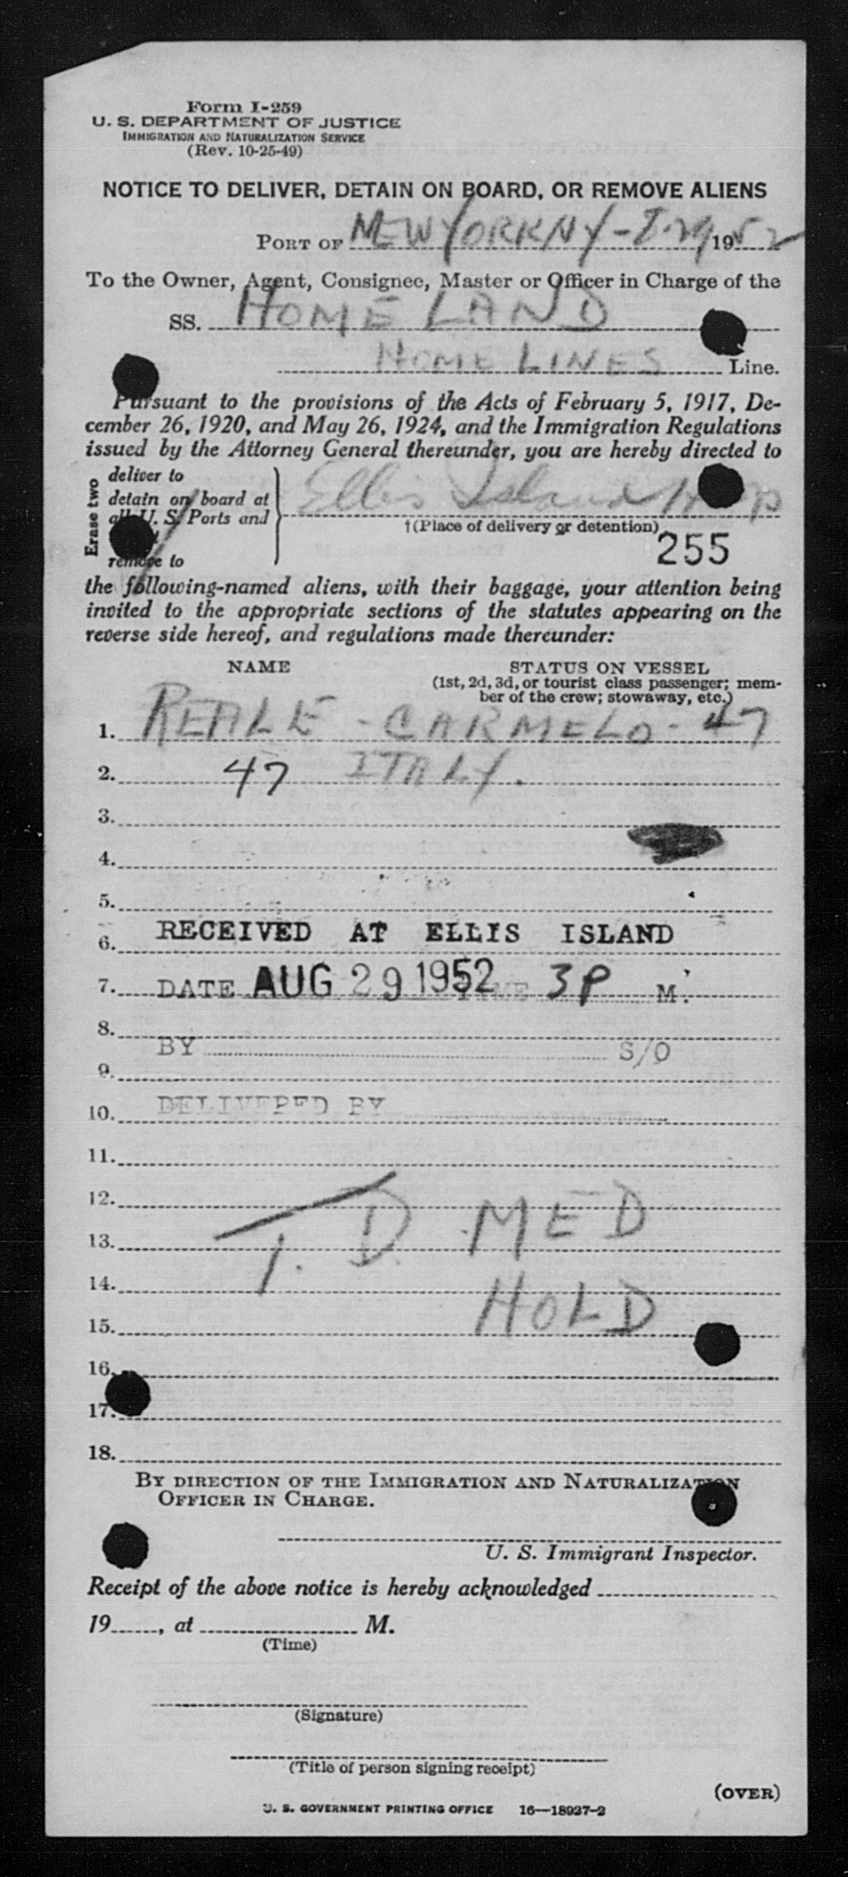 Form I-259
U. S. DEPARTMENT OF JUSTICE
IMMIGRATION AND NATURALIZATION SERVICE
(Rev. 10-25-49)
NOTICE TO DELIVER, DETAIN ON BOARD, OR REMOVE ALIENS
PORT OF NEW YORK NY - 8-29 1952
To the Owner, Agent, Consignee, Master or Officer in Charge of the
SS. HOME LAND
HOME LINES Line.
Pursuant to the provisions of the Acts of February 5, 1917, De-
cember 26, 1920, and May 26, 1924, and the Immigration Regulations
issued by the Attorney General thereunder, you are hereby directed to
Erase two
deliver to
detain on board at
all U. S. Ports and
remove to
Ellis Island Hosp
†(Place of delivery or detention)
255
the following-named aliens, with their baggage, your attention being
invited to the appropriate sections of the statutes appearing on the
reverse side hereof, and regulations made thereunder:
NAME STATUS ON VESSEL
(1st, 2d, 3d, or tourist class passenger; mem-
ber of the crew; stowaway, etc.)
1. REALE - CARMELO - 47
2. 47 ITALY.
3.
4.
5.
6. RECEIVED AT ELLIS ISLAND
7. DATE AUG 29 1952 TIME 3P M.
8.
BY S/O
9.
10. DELIVERED BY
11.
12.
13. T. D. MED
14. HOLD
15.
16.
17.
18.
BY DIRECTION OF THE IMMIGRATION AND NATURALIZATION
OFFICER IN CHARGE.
U. S. Immigrant Inspector.
Receipt of the above notice is hereby acknowledged
19 , at M.
(Time)
(Signature)
(Title of person signing receipt)
(OVER)
U. S. GOVERNMENT PRINTING OFFICE 16—18937-2